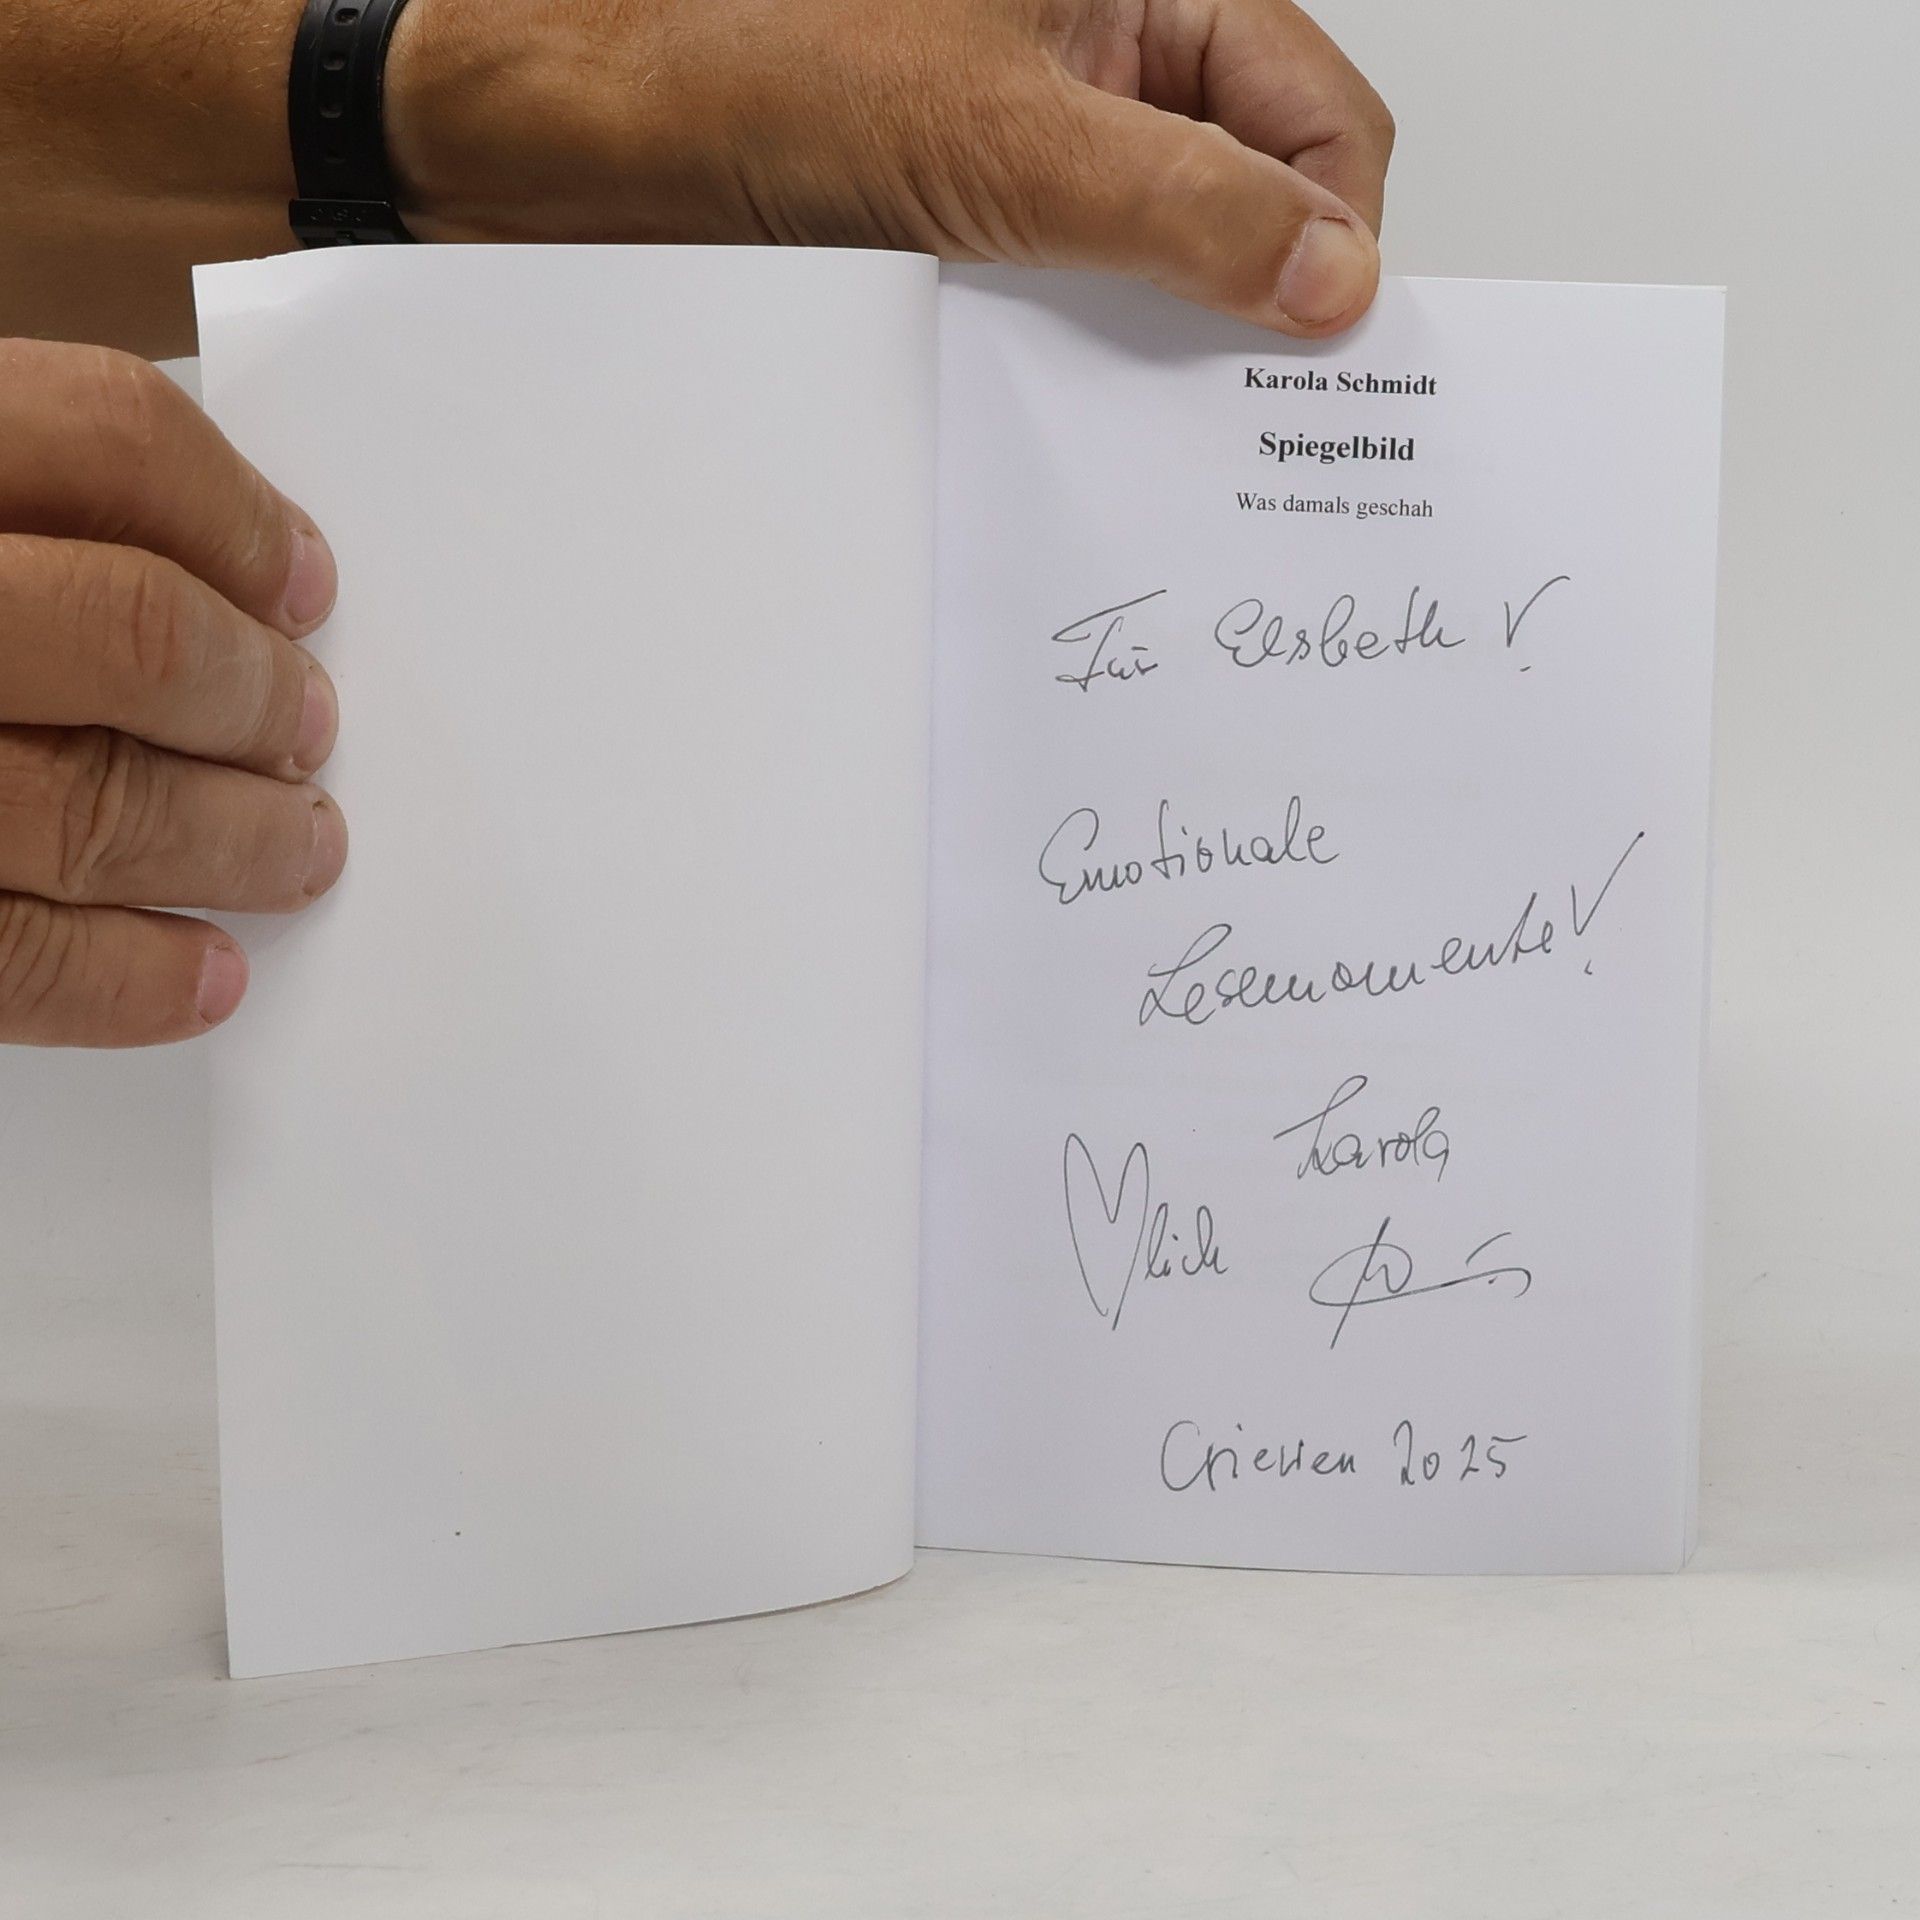 Karola Schmidt
Spiegelbild
Was damals geschah
Für Elsbeth!
Emotionale
Lesemomente!
Karola
♡lich
Criewen 2025